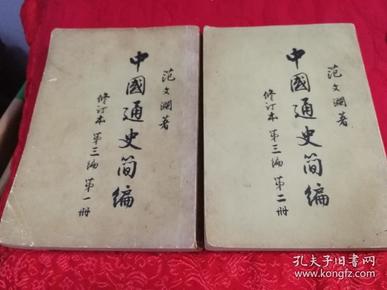 范文澜著
中國通史简编
修订本 第三编 第一册
范文澜著
中國通史简编
修订本 第三编 第二册
孔夫子旧书网
www.kongfz.com